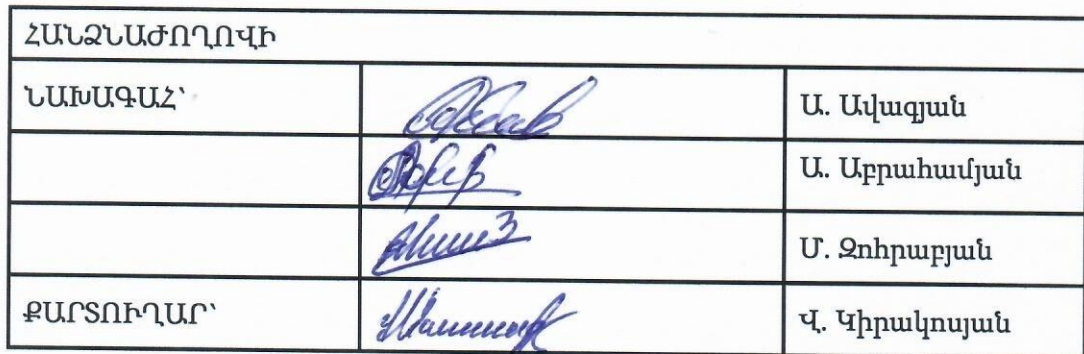 ՀԱՆՁՆԱԺՈՂՈՎԻ
ՆԱԽԱԳԱՀ՝ Ա. Ավագյան
Ա. Աբրահամյան
Մ. Զոհրաբյան
ՔԱՐՏՈՒՂԱՐ՝ Վ. Կիրակոսյան